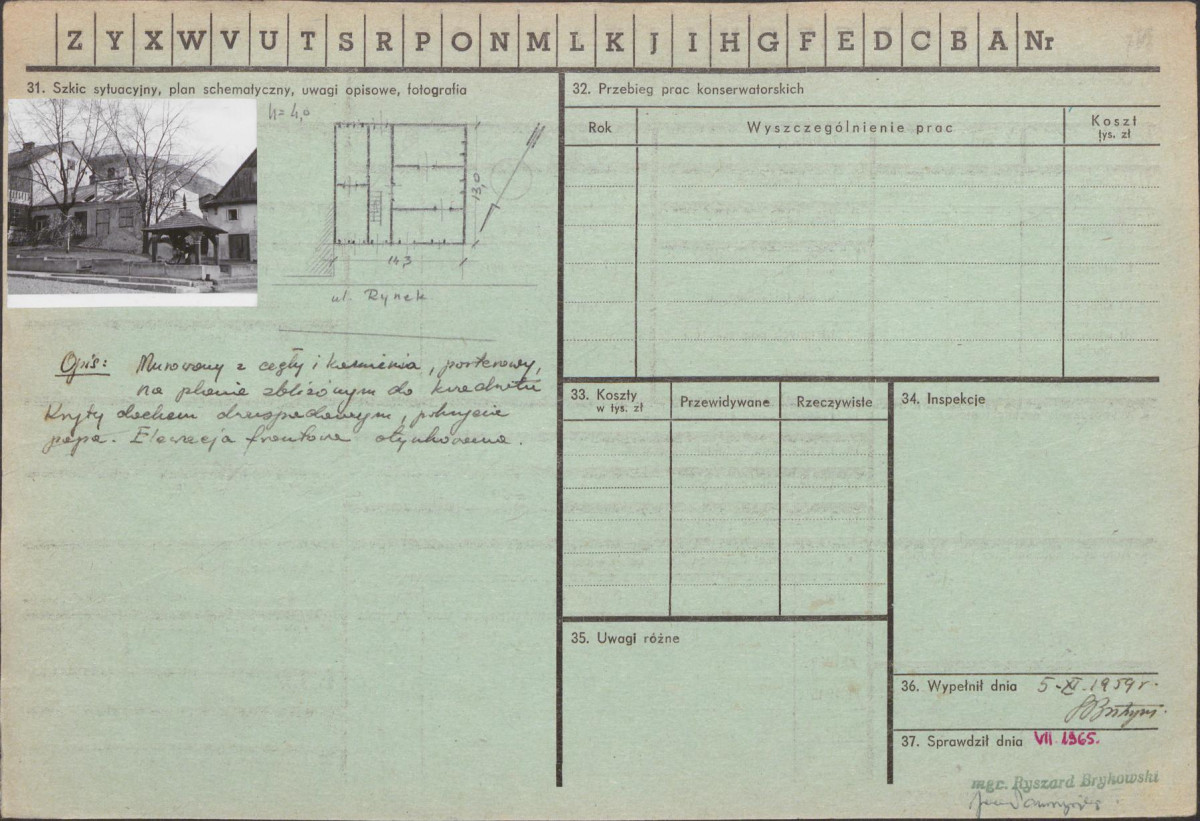 Z Y X W V U T S R P O N M L K J I H G F E D C B A Nr
31. Szkic sytuacyjny, plan schematyczny, uwagi opisowe, fotografia
h = 4,0
13,0
14,3
ul. Rynek
Opis: Murowany z cegły i kamienia, parterowy,
na planie zbliżonym do kwadratu
Kryty dachem dwuspadowym, pokrycie
papa. Elewacja frontowa otynkowana.
32. Przebieg prac konserwatorskich
Rok
Wyszczególnienie prac
Koszt
tys. zł
33. Koszty
w tys. zł
Przewidywane
Rzeczywiste
34. Inspekcje
35. Uwagi różne
36. Wypełnił dnia 5-XI-1959 r.
37. Sprawdził dnia VII 1965.
mgr. Ryszard Brykowski